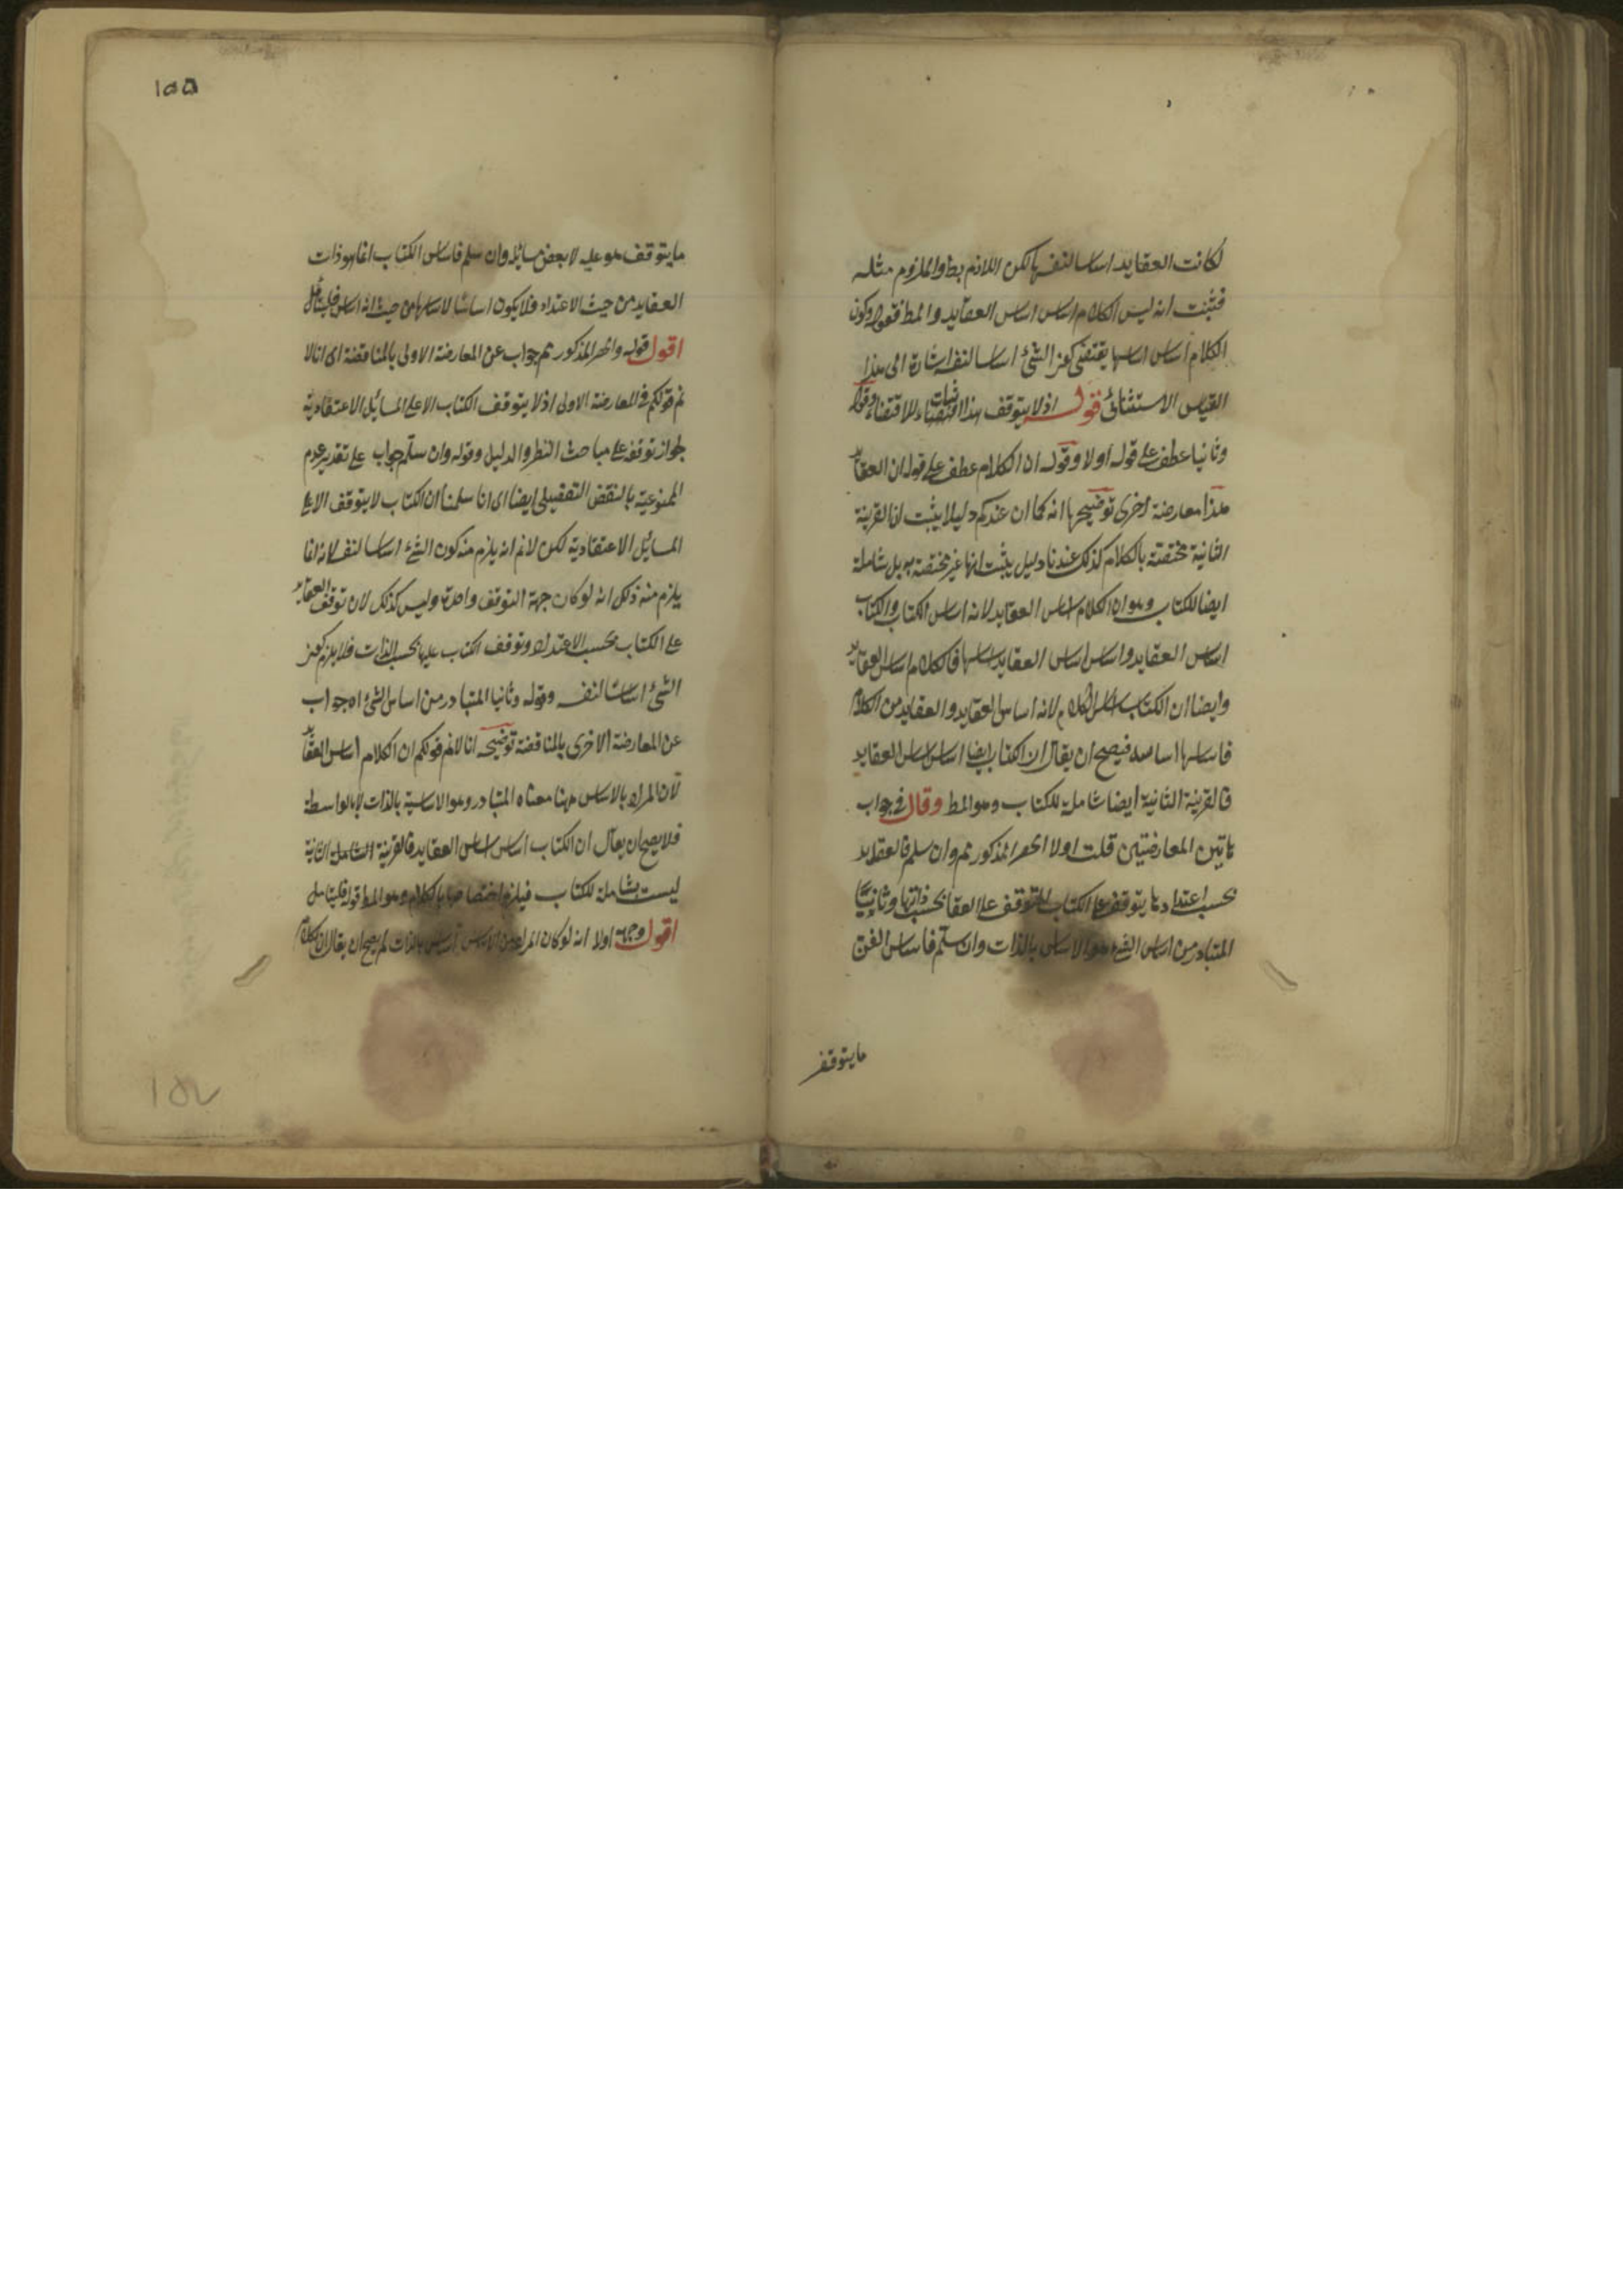 لكانت العقايد اساسا لنفسها لكن اللازم بط والملزوم مثله
فثبت انه ليس الكلام اساس اساس العقايد والمط فقوله وكون
الكلام اساس اساسها يقتضى كون الشئ اساسا لنفسه اشارة الى هذا
القياس الاستثنائى قوله اذ لا يتوقف هذا اثبات للاقتضاء وقوله
وثانيا عطف على قوله اولا وقوله ان الكلام عطف على قوله ان العقايد
هذا معارضة اخرى توضيحها انه كما ان عندكم دليلا يثبت ان القرينة
الثانية مختصة بالكلام كذلك عندنا دليل يثبت انها غير مختصة به بل شاملة
ايضا للكتاب وهو ان الكلام اساس العقايد لانه اساس الكتاب والكتاب
اساس العقايد واساس اساس العقايد اساسها فالكلام اساس العقايد
وايضا ان الكتاب اساس الكلام لانه اساس العقايد والعقايد من الكلام
فاساسها اساسه فيصح ان يقال ان الكتاب ايضا اساس اساس العقايد
فالقرينة الثانية ايضا شاملة للكتاب وهو المط وقال فى جواب
هاتين المعارضتين قلت اولا الحصر المذكور مم وان سلم فالعقايد
بحسب اعتدادها يتوقف على الكتاب المتوقف على العقايد بحسب ذاتها وثانيا
المتبادر من اساس الشئ هو الاساس بالذات وان سلم فاساس الفن
مايتوقف
١٥٥
مايتوقف هو عليه لا بعض مسايله وان سلم فاساس الكتاب انما هو ذات
العقايد من حيث الاعتداد فلا يكون اساسا لاساسها من حيث انه اساس فليتأمل
اقول قوله والحصر المذكور مم جواب عن المعارضة الاولى بالمناقضة اى انا لا
نم قولكم فى المعارضة الاولى اذ لا يتوقف الكتاب الا على المسايل الاعتقادية
لجواز توقفه على مباحث النظر والدليل وقوله وان سلم جواب على تقدير عدم
الممنوعية بالنقض التفصيلى ايضا اى انا سلمنا ان الكتاب لا يتوقف الا على
المسايل الاعتقادية لكن لا نم انه يلزم منه كون الشئ اساسا لنفسه لانه انما
يلزم منه ذلك انه لو كان جهة التوقف واحدة وليس كذلك لان توقف العقايد
على الكتاب بحسب الاعتداد وتوقف الكتاب عليها بحسب الذات فلا يلزم كون
الشئ اساسا لنفسه وقوله وثانيا المتبادر من اساس الشئ اه جواب
عن المعارضة الاخرى بالمناقضة توضيحه انا لا نم قولكم ان الكلام اساس العقايد
لان المراد بالاساس ههنا معناه المتبادر وهو الاساسية بالذات لا بالواسطة
فلا يصح ان يقال ان الكتاب اساس اساس العقايد فالقرينة الثانية
ليست بشاملة للكتاب فيلزم اختصاصها بالكلام وهو المط قوله فليتامل
اقول وجهه اولا انه لو كان المراد من الاساس اساس بالذات لم يصح ان يقال ان الكلام
١٥٤